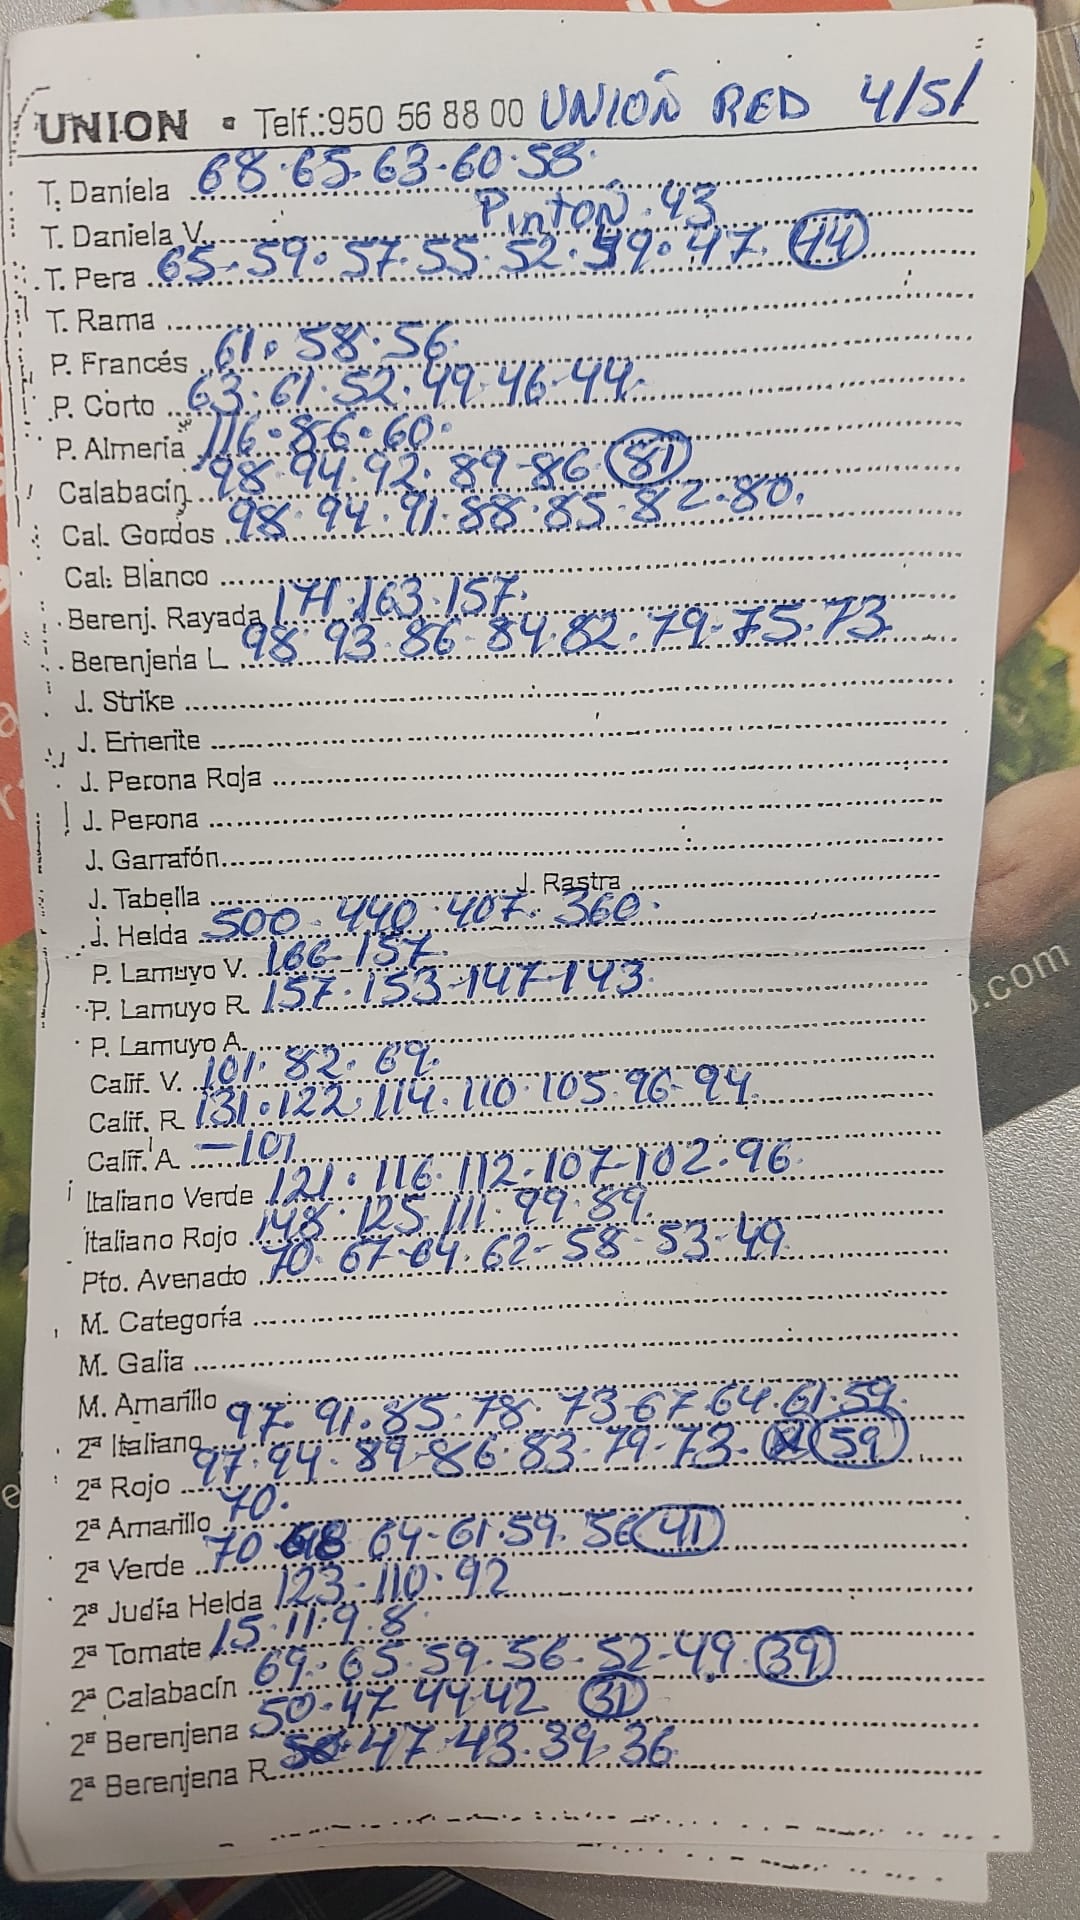 UNION • Telf.:950 56 88 00 UNIOÑ RED 4/5/
T. Daniela 68·65·63·60·58·
T. Daniela V. Pintoñ·43
T. Pera 65·59·57·55·52·49·47· 44
T. Rama
P. Francés 61·58·56·
P. Corto 63·61·52·49·46-44·
P. Almeria 116·86·60·
Calabacín 98·94·92·89-86· 81
Cal. Gordos 98·94·91·88·85·82·80·
Cal. Blanco
Berenj. Rayada 171·163·157·
Berenjena L 98·93·86-84·82·79·75·73
J. Strike
J. Emerite
J. Perona Roja
J. Perona
J. Garrafón
J. Tabella J. Rastra
J. Helda 500·440·407·360·
P. Lamuyo V. 166-157·
P. Lamuyo R. 157·153-147-143·
P. Lamuyo A.
Calif. V. 101·82·69·
Calif. R. 131·122·114·110·105·96-94·
Calif. A. -101
Italiano Verde 121·116·112·107-102·96·
Italiano Rojo 148·125·111·99·89·
Pto. Avenado 70·67-64·62-58-53-49·
M. Categoría
M. Galia
M. Amarillo
2ª Italiano 97·91·85·78·73-67·64·61·59·
2ª Rojo 97·94·89-86·83·79-73· 59
2ª Amarillo 70·
2ª Verde 70 68 64-61·59·56 41
2ª Judía Helda 123-110·92
2ª Tomate 15·11·9·8·
2ª Calabacín 69·65·59·56-52-49· 39
2ª Berenjena 50·47·44·42 31
2ª Berenjena R. 47·43·39·36·